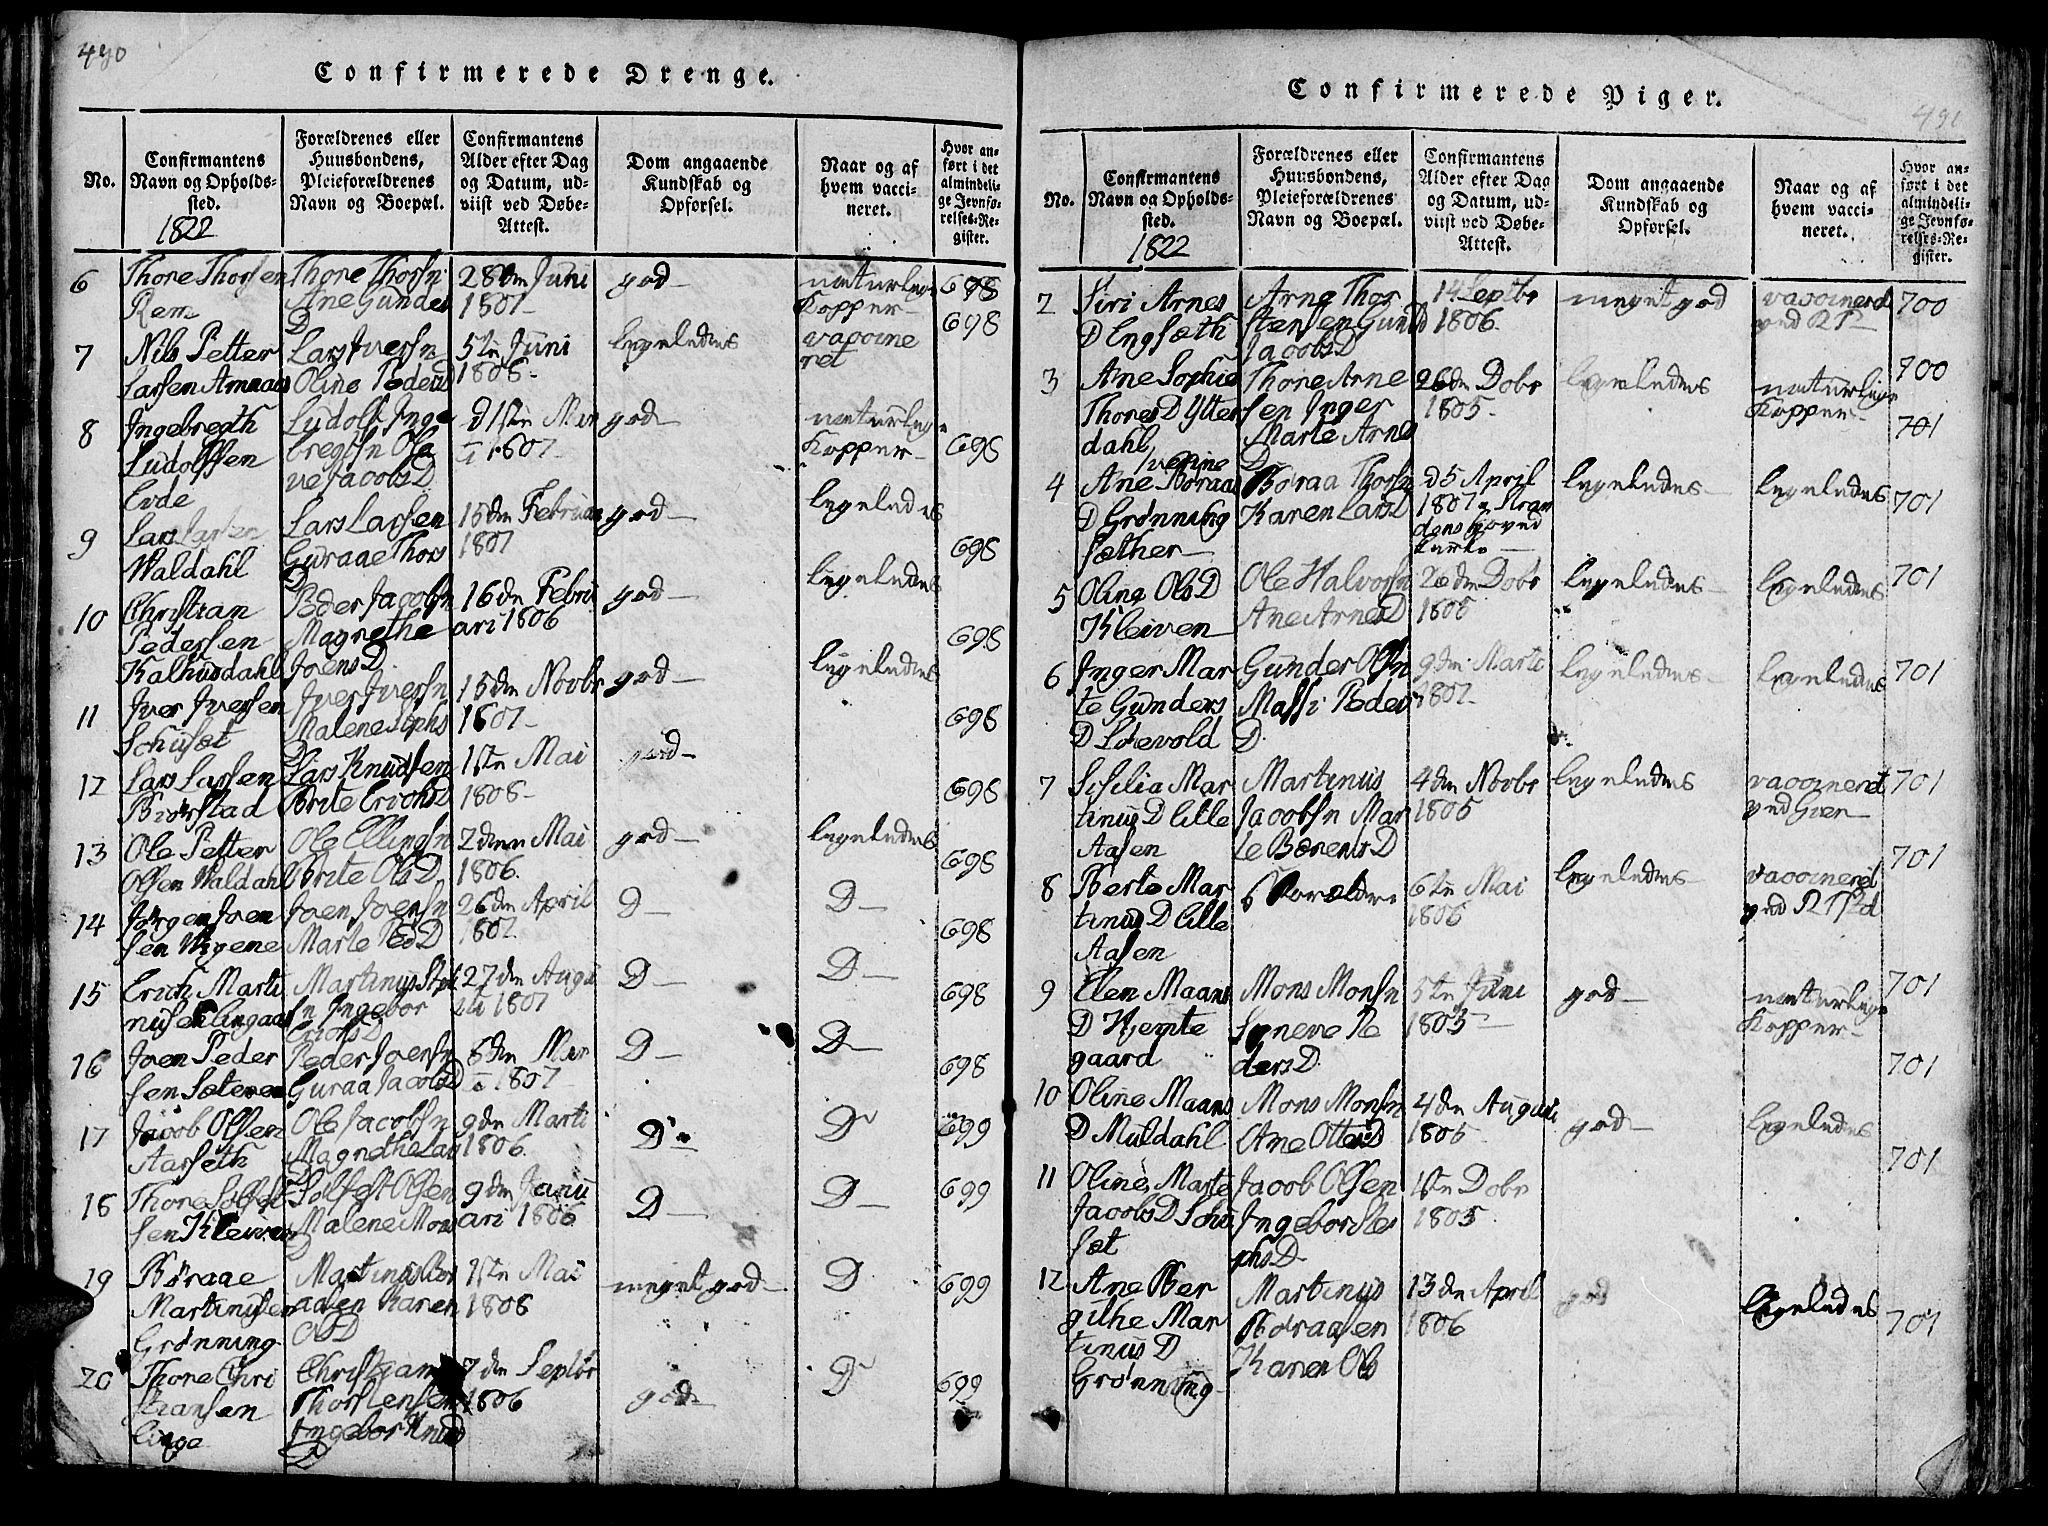 490
Confirmerede Drenge.
No.
Confirmantens
Navn og Opholds-
sted.
1822
Forældrenes eller
Huusbondens,
Pleieforældrenes
Navn og Boepæl.
Confirmantens
Alder efter Dag
og Datum, ud-
viist ved Døbe-
Attest.
Dom angaaende
Kundskab og
Opførsel.
Naar og af
hvem vacci-
neret.
Hvor an-
ført i det
almindeli-
ge Jevnfø-
relses-Re-
gister.
6
Thore Thorsen
Rem
Thore Thorsn
Ane Gundes
D
28de Juni
1807
god
naturlige
Kopper
698
698
7
Nils Petter
Larsen
Lars Iversn
Oline Peders D
5te Juni
1808
ligeledes
vaccine
ret
8
Ingebregth
Ludolfsen
Evde
Ludolf Inge
bregtsn Ole
ve Jacobs D
1807
god
naturlige
Kopper
698
9
Lars Larsen
Waldahl
Lars Larsen
Guraae Thors
D
15den Februar
1807
god
ligeledes
698
10
Christian
Pedersen
Kalhusdahl
Peder Jacobsn
Magrethe
Joens D
16de Febru
ari 1806
god
ligeledes
698
11
Iver Iversen
Schuset
Iver Iversn
Malene Stephs
D
15den Novbr
1807
god
ligeledes
698
12
Lars Larsen
Biørstad
Lars Knudsen
Brite Erichs D
1ste Mai
1808
god
698
13
Ole Petter
Olsen Waldahl
Ole Ellingsn
Brite Ols D
2den Mai
1806
god
ligeledes
698
14
Jørgen Joen
sen Wigene
Joen Joensn
Marte Ped D
26de April
1807
D
D
698
15
Erich Marti
nusen
Martinus
sn Ingebor
Erichs D
27de Augu
sti 1807
D
D
698
16
Joen Peder
sen Sæteren
Peder Joensn
Guraa Jacobs D
1807
D
D
698
17
Jacob Olsen
Aarseth
Ole Jacobsn
Magrethe Lars
D
9de Marti
1806
D
D
699
18
Thore Solfest
sen Kleiven
Solfest Olsen
Malene Mons
D
9de Janu
ari 1806
D
D
699
19
Børaae
Martinusen
Grønning
Martinus Bør
aasen Karen
Ols D
1ste Mai
1808
meget god
D
699
20
Thore Chri
stiansen
Linge
Christian
Thorstensen
Ingebor Knud
D
7de Septbr
1806
god
D
699
Confirmerede Piger.
491
No.
Confirmantens
Navn og Opholds-
sted.
1822
Forældrenes eller
Huusbondens,
Pleieforældrenes
Navn og Boepæl.
Confirmantens
Alder efter Dag
og Datum, ud-
viist ved Døbe-
Attest.
Dom angaaende
Kundskab og
Opførsel.
Naar og af
hvem vacci-
neret.
Hvor an-
ført i det
almindeli-
ge Jevnfø-
relses-Re-
gister.
2
Siri Arnes
D Engsæth
Arne Thor
stensen Gunild
Jacobs D
14 Septbr
1806
meget god
vaccinered
ved
700
3
Ane Sophie
Thores D Ytter
dahl
Thore Arne
sen Inger
Marte Arnes
D
26de Dcbr
1805
ligeledes
naturlige
Kopper
700
701
4
Ane
Børaas
D Grønning
sæther
Børaa Thorsn
Karen Lars D
d 5 April
1807
ligeledes
ligeledes
701
5
Oline Ols D
Kleiven
Ole Halvorsn
Ane Arnes D
26de Dcbr
1805
ligeledes
ligeledes
701
6
Inger Mar
te Gunders
D Løevold
Gunder Olsn
Massi Peder
D
9de Marti
1807
ligeledes
ligeledes
701
7
Sisilia Mar
tinus D Lille
Aasen
Martinus
Jacobsn Mar
te Bærents D
4de Novbr
1805
ligeledes
vaccineret
ved
701
8
Berte Mar
tinus D Lille
Aasen
Forældre
6te Mai
1806
ligeledes
vaccineret
ved
701
9
Elen Maans
D Hjemte
gaard
Mons Monsn
Syneve Pe
ders D
5te Juni
1805
god
naturlige
Kopper
701
10
Oline Maans
D Muldahl
Mons Monsn
Ane Otters D
4de Augusti
1805
god
ligeledes
701
11
Oline Marte
Jacobs D Schu
sæt
Jacob Olsen
Ingebor Ste
phs D
1ste Dcbr
1805
701
12
Ane Ber
githe Mar
tinus D
Grønning
Martinus
Børaasen
Karen Ols
13de April
1806
god
ligeledes
701